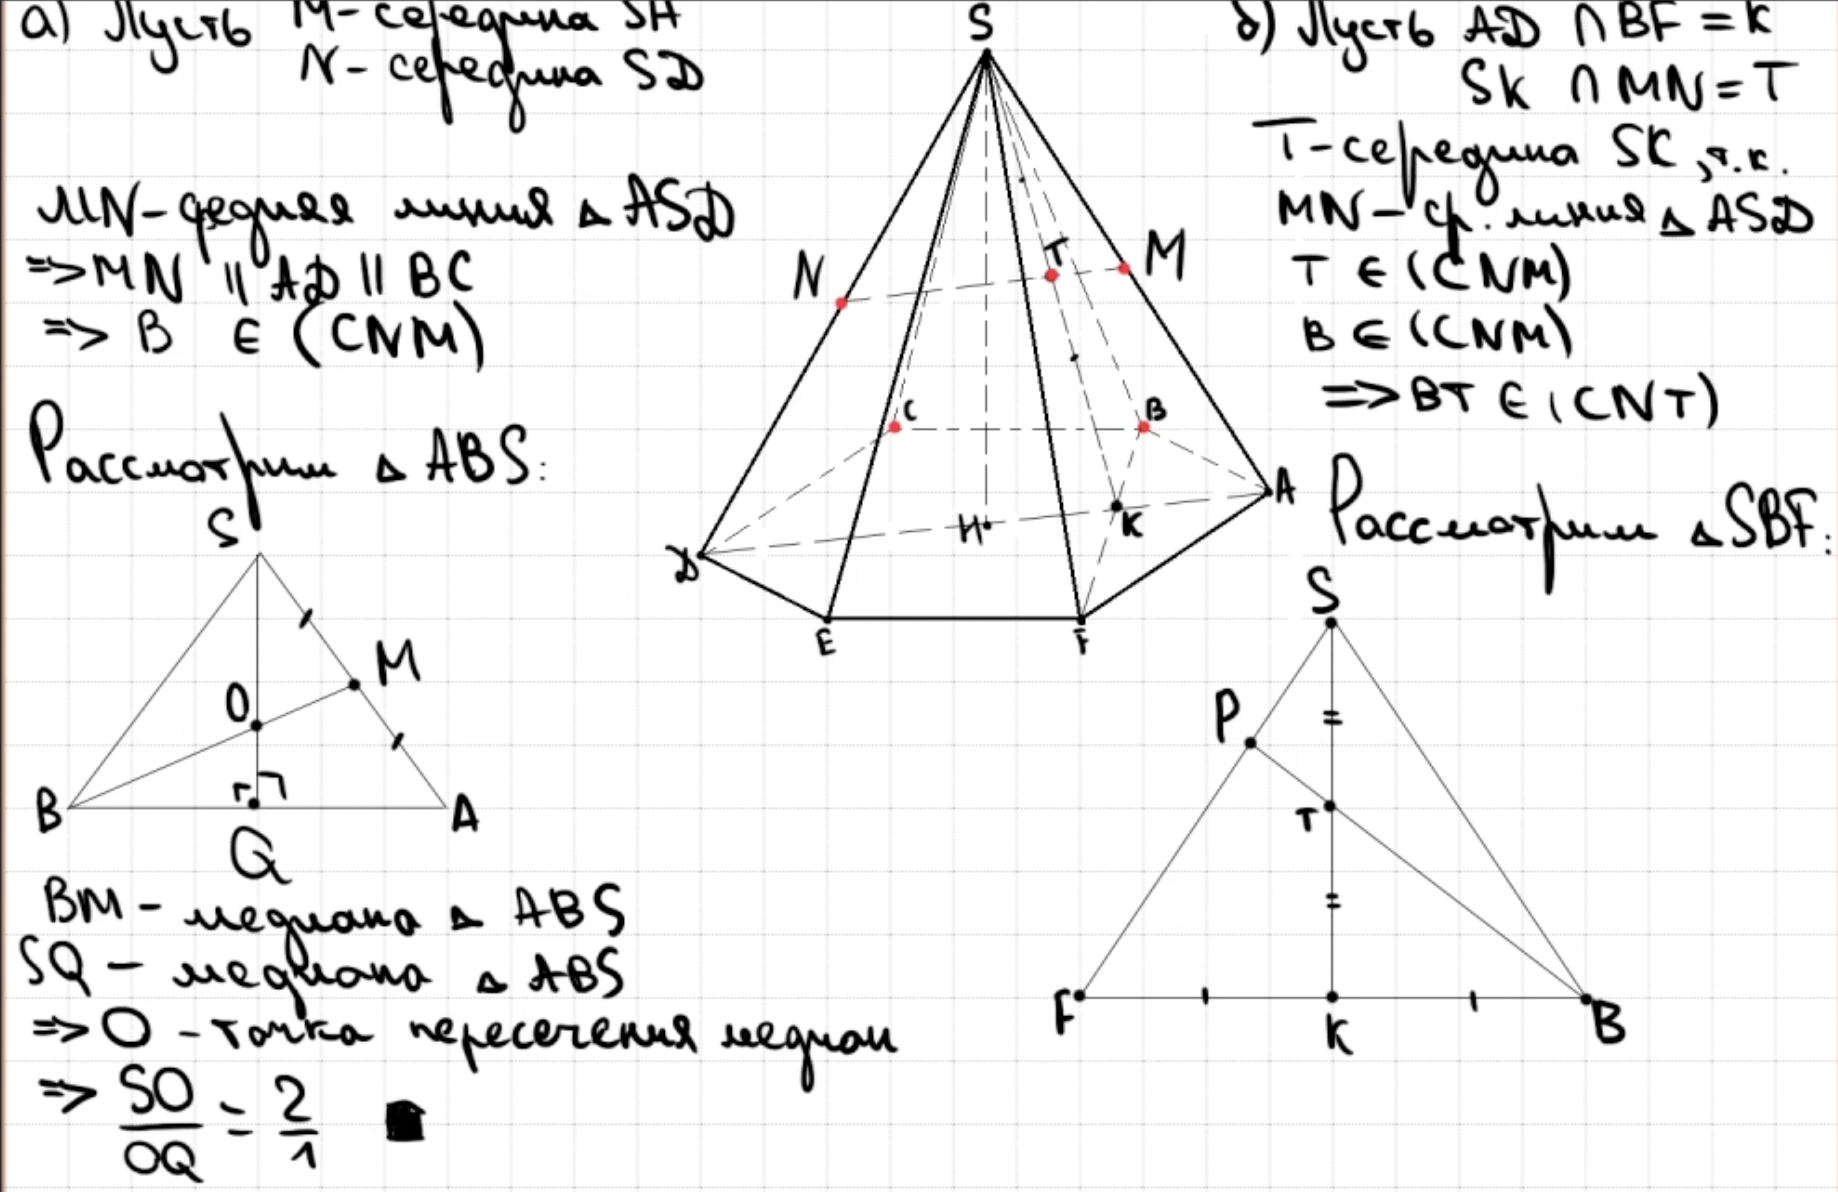 а) Пусть M - середина SA
N - середина SD
MN - средняя линия △ ASD
=> MN || AD || BC
=> B ∈ (CNM)
Рассмотрим △ ABS:
S
M
O
B
Q
A
BM - медиана △ ABS
SQ - медиана △ ABS
=> O - точка пересечения медиан
=> SO/OQ = 2/1 ■
S
N
T
M
C
B
A
H
K
D
E
F
б) Пусть AD ∩ BF = K
SK ∩ MN = T
T - середина SK, т.к.
MN - ср. линия △ ASD
T ∈ (CNM)
B ∈ (CNM)
=> BT ∈ (CNT)
Рассмотрим △ SBF:
S
P
T
F
K
B